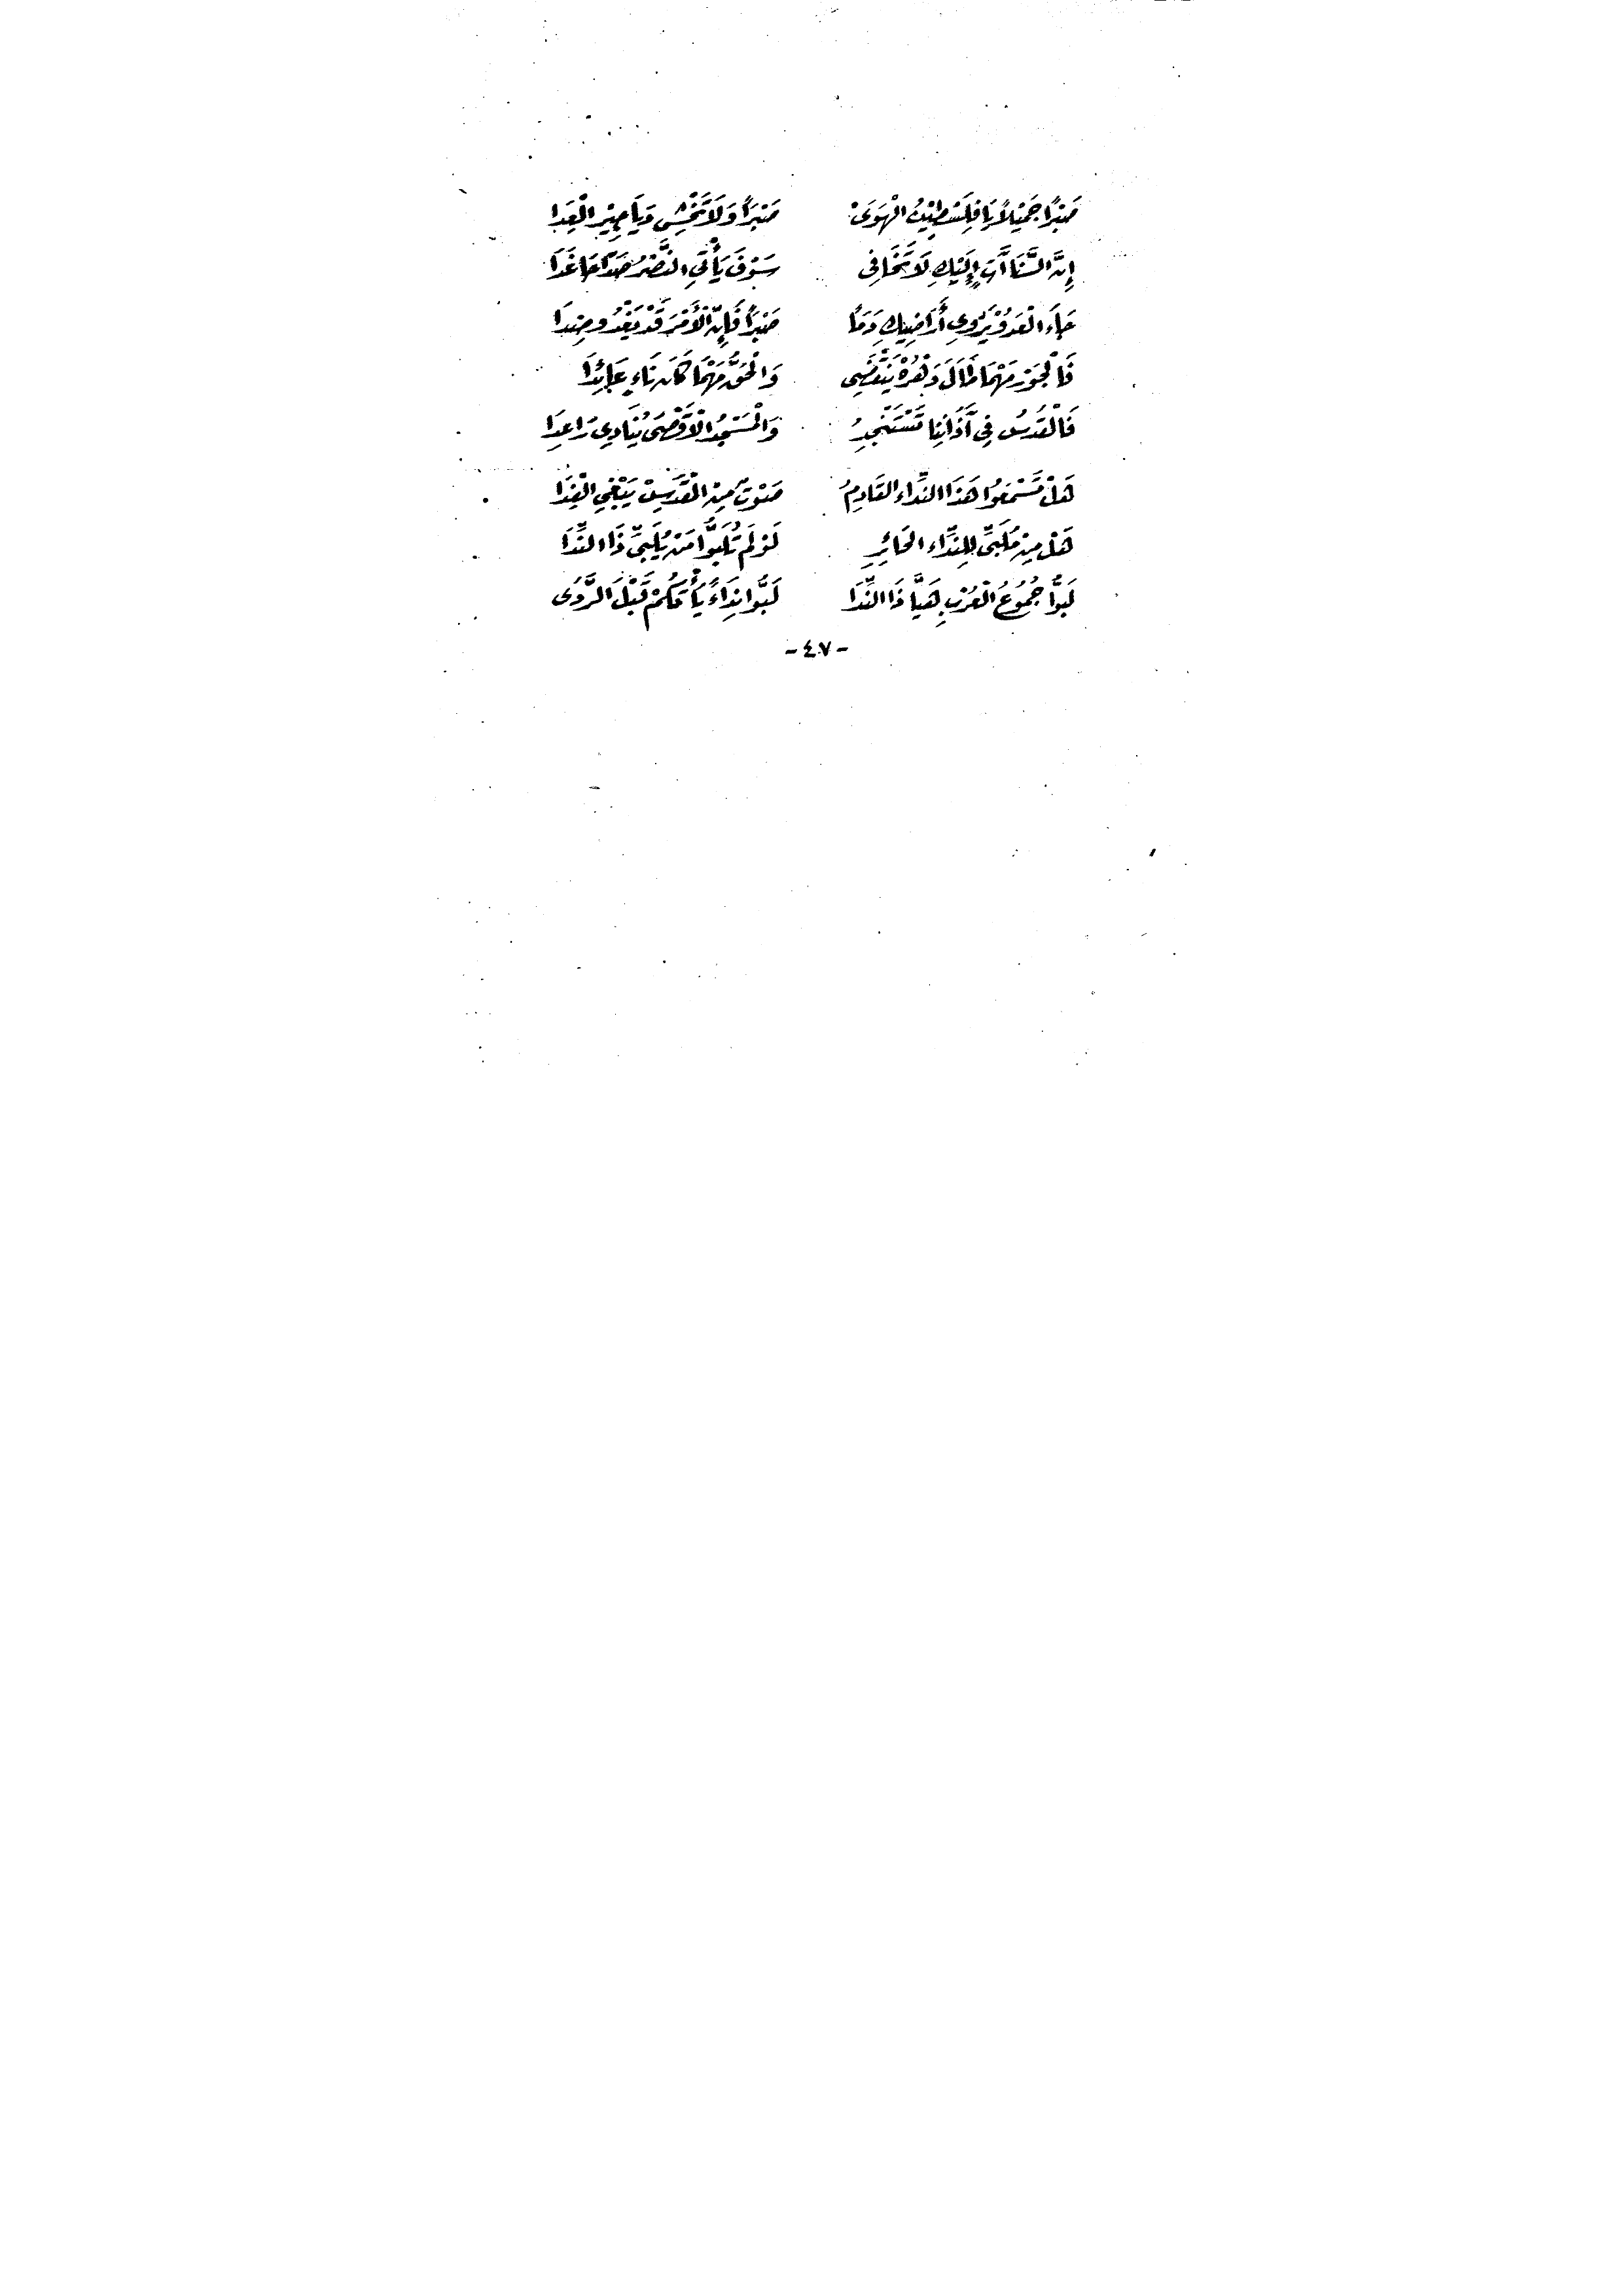 صَبْرًا جَمِيْلاً يَا فِلَسْطِيْنُ الْهَوَىْ صَبْرًا وَلاَ تَخْشِي دَيَاجِيْرِ الْعِدَا
إِنَّ السَّنَا آتٍ إِلَيْكِ لاَ تَخَافِي سَوْفَ يَأْتِي النَّصْرُ صَدَّاحًا غَدَا
جَاءَ الْعَدُوْ يَرْوِي أَرَاضِيْكِ دَمًا صَبْرًا فَإِنَّ الْأَمْرَ قَدْ يَغْدُو ضِدَا
فَالْجَوْرُ مَهْمَا طَالَ دَهْرُهْ يَنْقَضِي وَالْحَقُّ مَهْمَا كَانَ نَاءٍ عَائِدَا
فَالْقُدْسُ فِي آذَانِنَا تَسْتَنْجِدُ وَالْمَسْجِدُ الْأَقْصَىْ يُنَادِي رَاعِدَا
هَلْ تَسْمَعُوا هَذَا النِّدَاءَ القَادِمُ صَوْتٌ مِنَ الْقُدْسِ يَبْغِي الْفِدَا
هَلْ مِنْ مُلَبِّي لِلنِّدَاءِ الحَائِرِ لَوْ لَمْ تُلَبُّوا مَنْ يُلَبِّي ذَا النِّدَا
لَبُّوا جُمُوعُ الْعُرْبِ هَيَّا ذَا النِّدَا لَبُّوا نِدَاءً يَأْتِكُمْ قَبْلَ الرَّدَى
- ٤٧ -